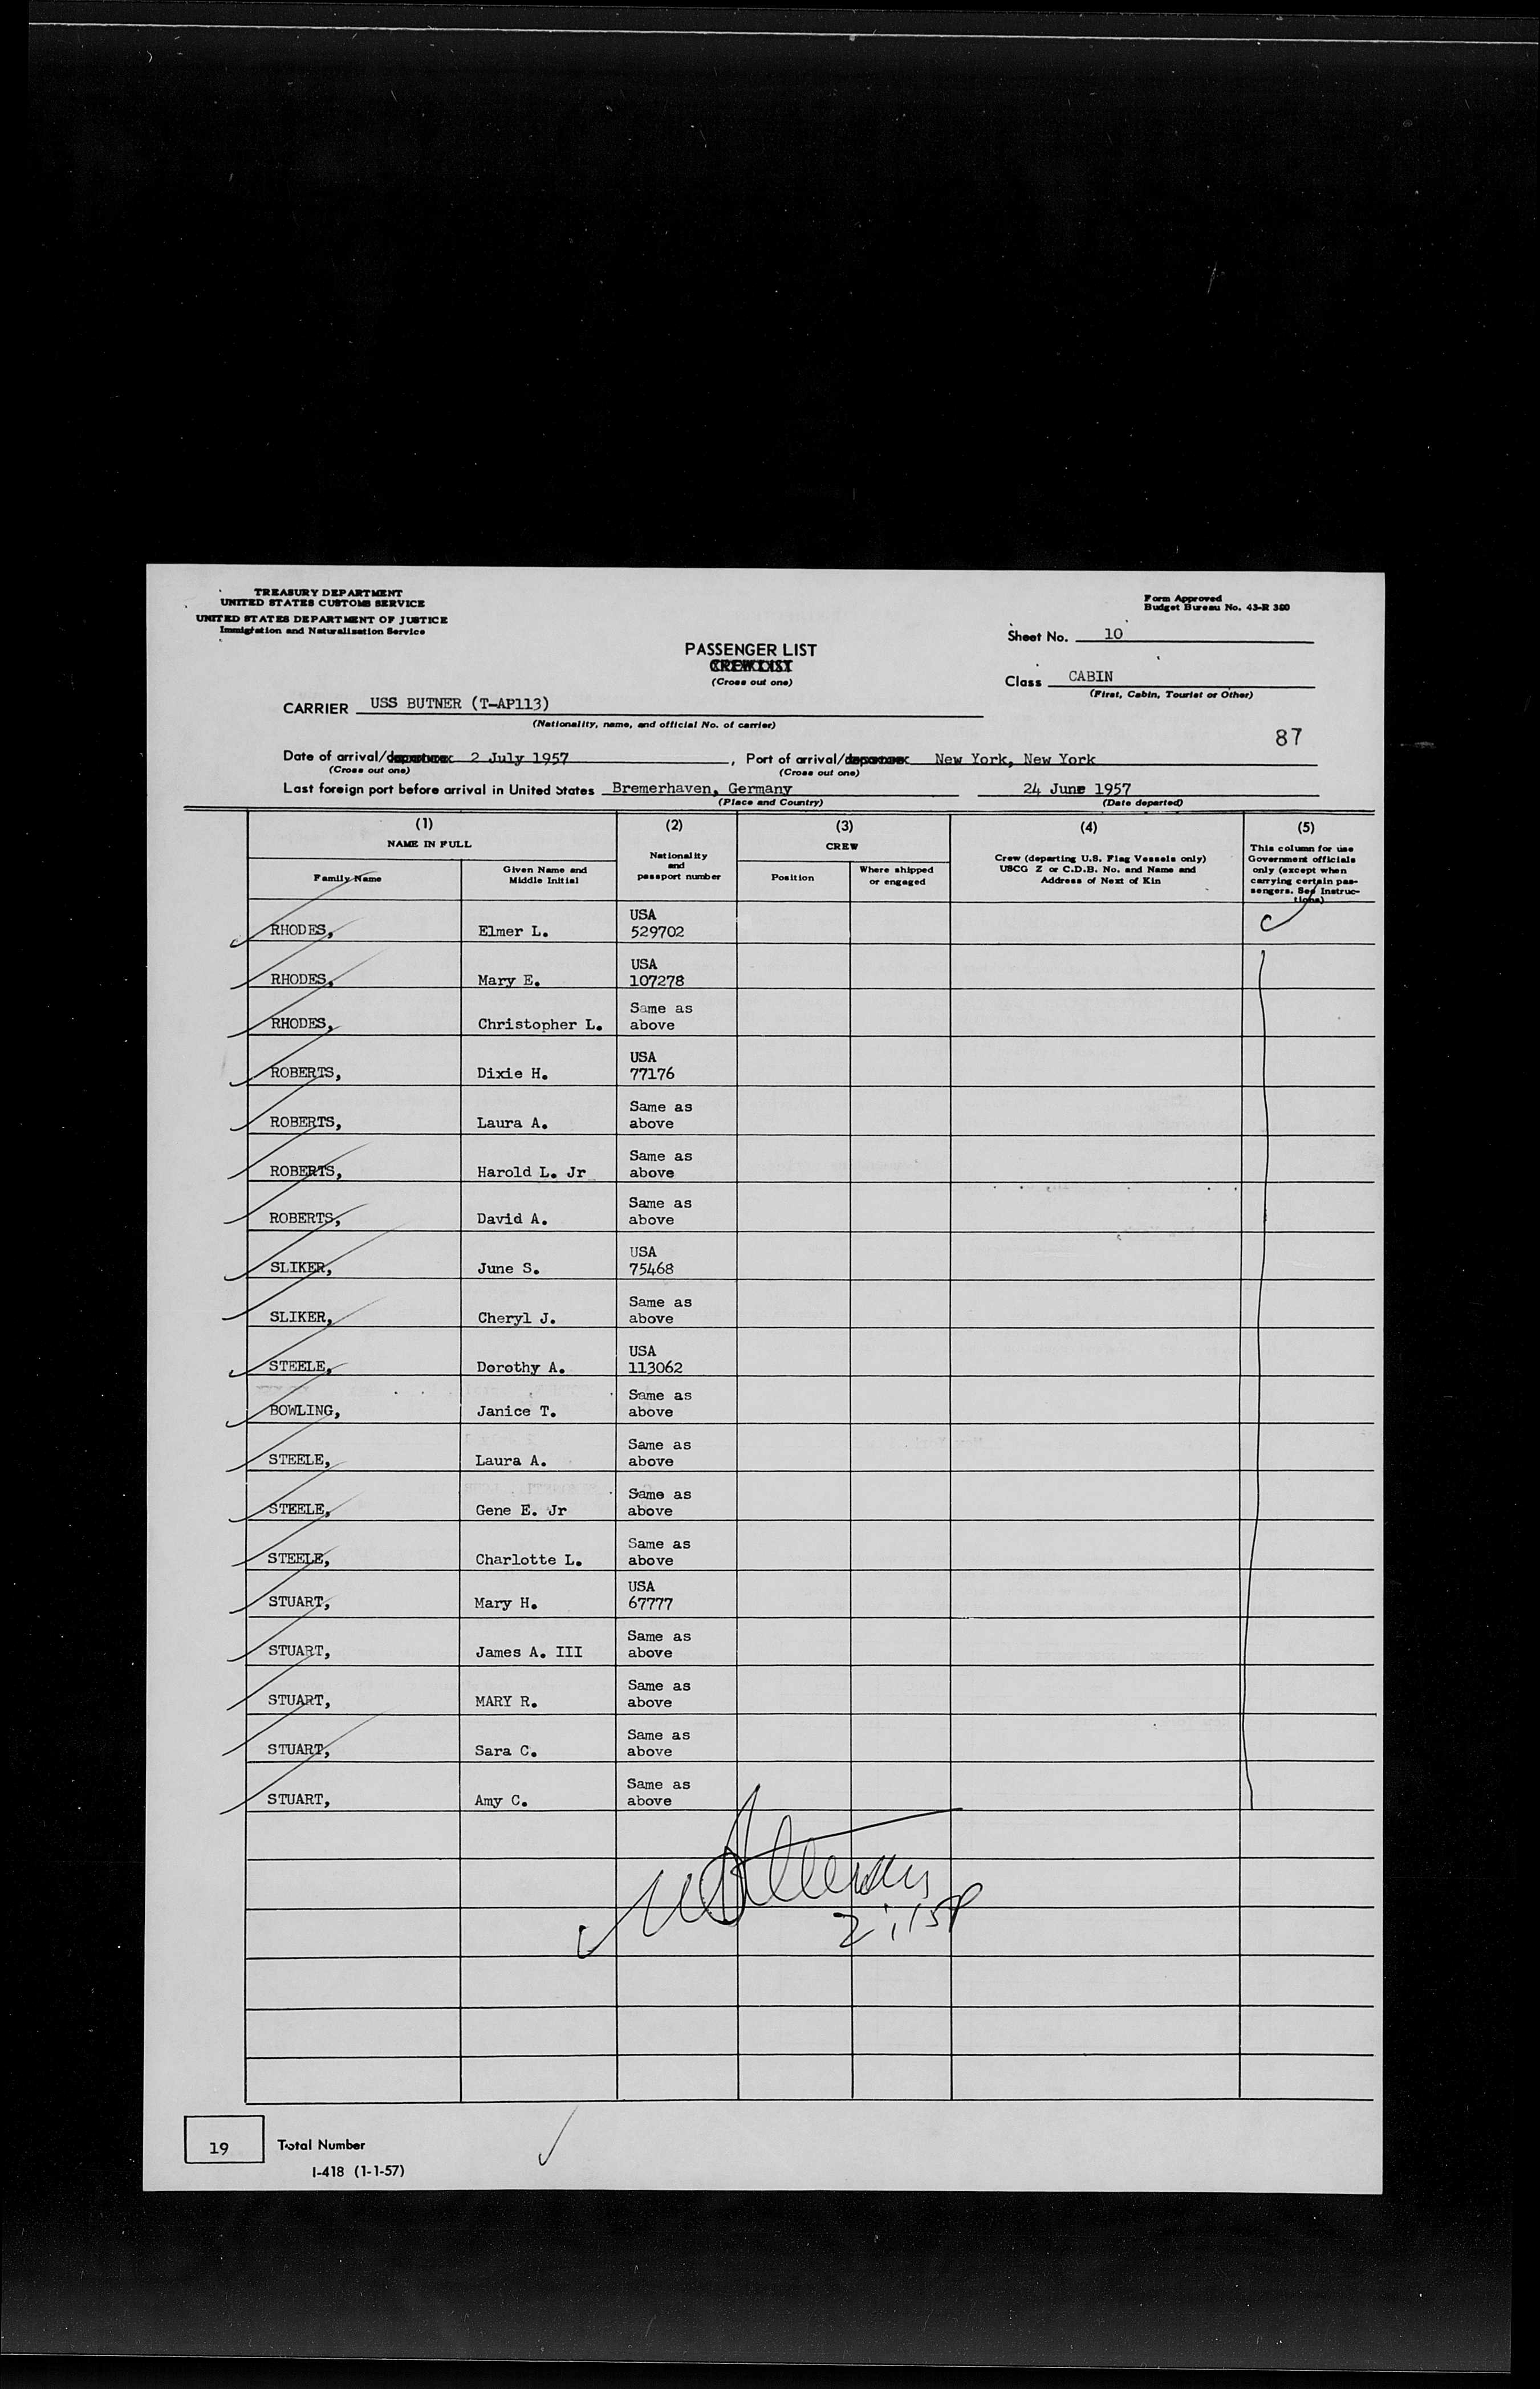 TREASURY DEPARTMENT
UNITED STATES CUSTOMS SERVICE
UNITED STATES DEPARTMENT OF JUSTICE
Immigration and Naturalization Service
Form Approved
Budget Bureau No. 43-R 380
Sheet No. 10
PASSENGER LIST
CREW LIST
(Cross out one)
Class CABIN
(First, Cabin, Tourist or Other)
CARRIER USS BUTNER (T-AP113)
(Nationality, name, and official No. of carrier)
87
Date of arrival/departure 2 July 1957, Port of arrival/departure New York, New York
(Cross out one) (Cross out one)
Last foreign port before arrival in United States Bremerhaven, Germany 24 June 1957
(Place and Country) (Date departed)
(1) (2) (3) (4) (5)
NAME IN FULL
Family Name
Given Name and
Middle Initial
Nationality
and
passport number
CREW
Position
Where shipped
or engaged
Crew (departing U.S. Flag Vessels only)
USCG Z or C.D.B. No. and Name and
Address of Next of Kin
This column for use
Government officials
only (except when
carrying certain pas-
sengers. See Instruc-
tions)
RHODES, Elmer L. USA 529702
RHODES, Mary E. USA 107278
RHODES, Christopher L. Same as above
ROBERTS, Dixie H. USA 77176
ROBERTS, Laura A. Same as above
ROBERTS, Harold L. Jr Same as above
ROBERTS, David A. Same as above
SLIKER, June S. USA 75468
SLIKER, Cheryl J. Same as above
STEELE, Dorothy A. USA 113062
BOWLING, Janice T. Same as above
STEELE, Laura A. Same as above
STEELE, Gene E. Jr Same as above
STEELE, Charlotte L. Same as above
STUART, Mary H. USA 67777
STUART, James A. III Same as above
STUART, MARY R. Same as above
STUART, Sara C. Same as above
STUART, Amy C. Same as above
19 Total Number
I-418 (1-1-57)